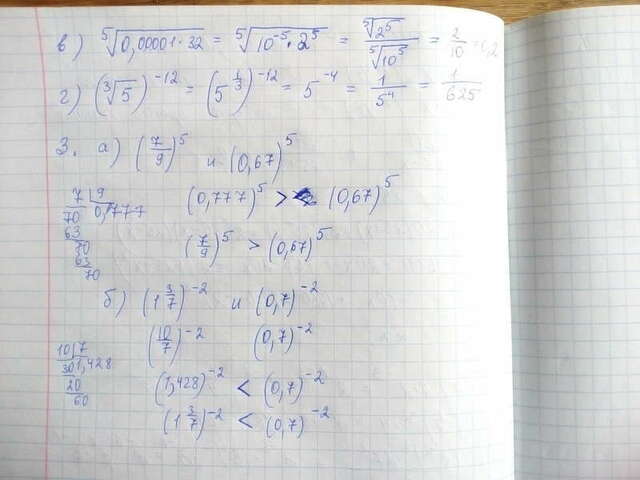 в) ⁵√(0,00001·32) = ⁵√(10⁻⁵·2⁵) = ⁵√2⁵ / ⁵√10⁵ = 2/10 = 0,2
г) (³√5)⁻¹² = (5^(1/3))⁻¹² = 5⁻⁴ = 1/5⁴ = 1/625
3. а) (7/9)⁵ и (0,67)⁵
7 | 9
70 0,777
63
70
63
70
(0,777)⁵ > (0,67)⁵
(7/9)⁵ > (0,67)⁵
б) (1 3/7)⁻² и (0,7)⁻²
(10/7)⁻² (0,7)⁻²
10 | 7
30 1,428
20
60
(1,428)⁻² < (0,7)⁻²
(1 3/7)⁻² < (0,7)⁻²